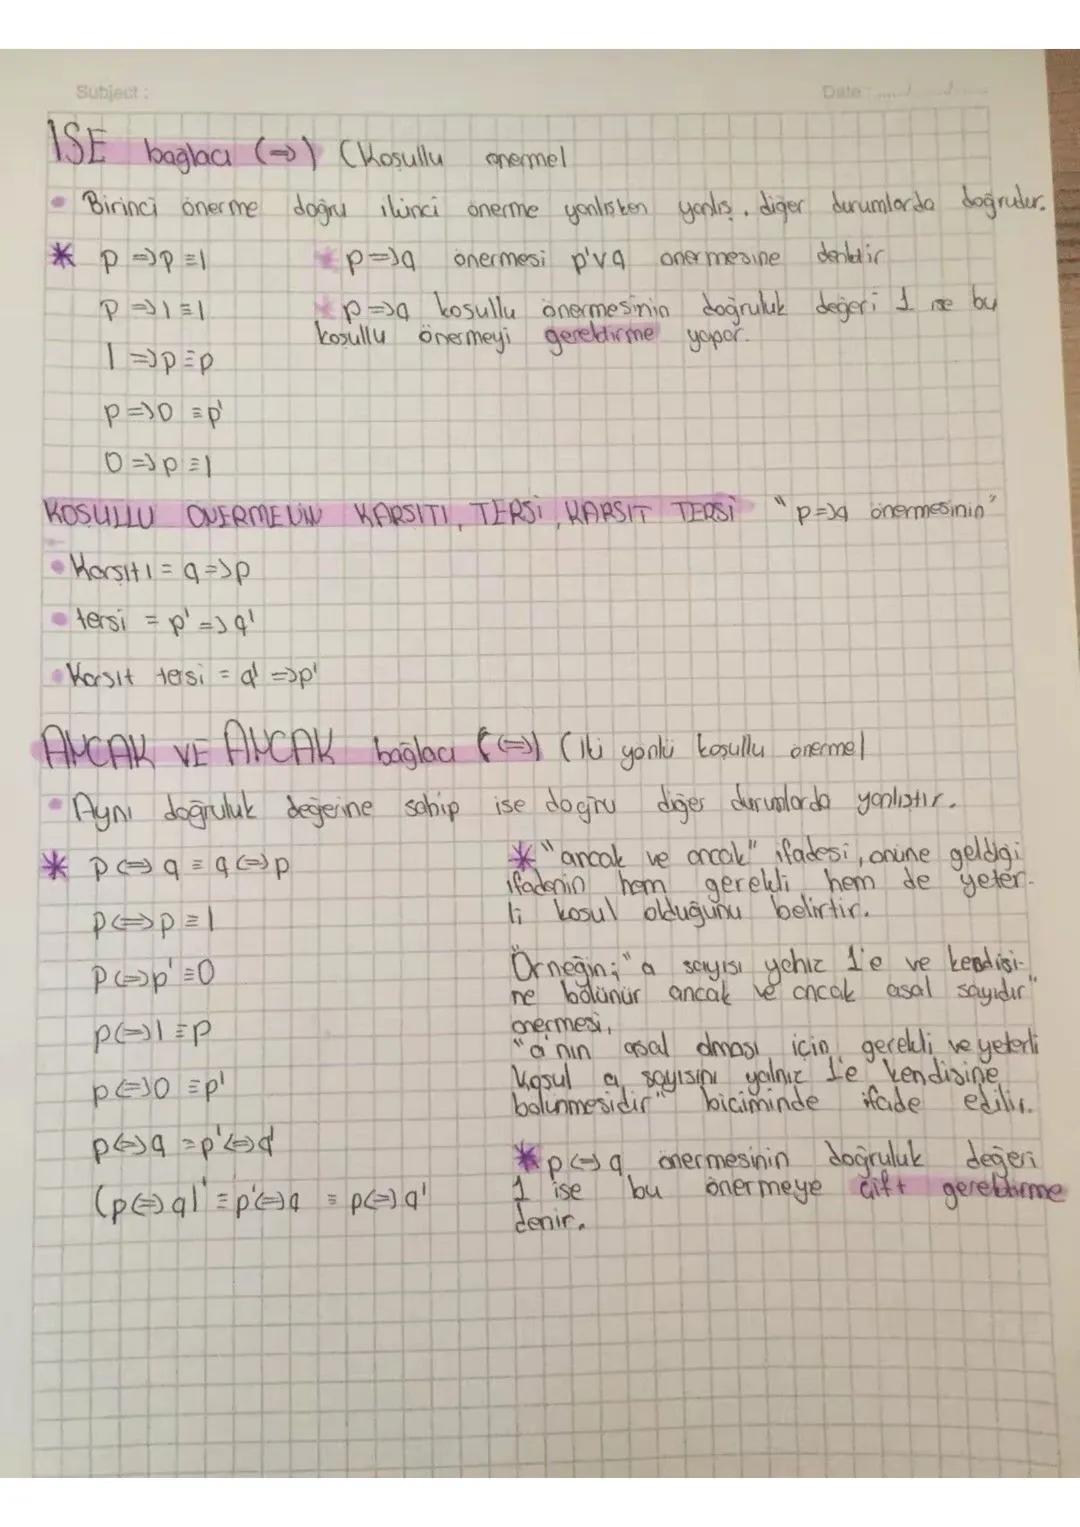 Subject :
Date : ....../......./.......
İSE bağlacı (⇒) (Koşullu önerme)
• Birinci önerme doğru ikinci önerme yanlışken yanlış, diğer durumlarda doğrudur.
* p ⇒ p ≡ 1
* p ⇒ q önermesi p'vq önermesine denktir
p ⇒ 1 ≡ 1
* p ⇒ q koşullu önermesinin doğruluk değeri 1 ise bu
koşullu önermeyi gerektirme yapar.
1 ⇒ p ≡ p
p ⇒ 0 ≡ p'
0 ⇒ p ≡ 1
KOŞULLU ÖNERMENİN KARŞITI, TERSİ, KARŞIT TERSİ "p ⇒ q önermesinin"
• Karşıtı = q ⇒ p
• tersi = p' ⇒ q'
• Karşıt tersi = q' ⇒ p'
ANCAK VE ANCAK bağlacı (⇔) (İki yönlü koşullu önerme)
• Aynı doğruluk değerine sahip ise doğru diğer durumlarda yanlıştır.
* p ⇔ q ≡ q ⇔ p
p ⇔ p ≡ 1
p ⇔ p' ≡ 0
p ⇔ 1 ≡ p
p ⇔ 0 ≡ p'
p ⇔ q ≡ p' ⇔ q'
(p ⇔ q)' ≡ p' ⇔ q ≡ p ⇔ q'
* "ancak ve ancak" ifadesi, önüne geldiği
ifadenin hem gerekli hem de yeter-
li koşul olduğunu belirtir.
Örneğin; "a sayısı yalnız 1'e ve kendisi-
ne bölünür ancak ve ancak asal sayıdır"
önermesi,
"a'nın asal olması için gerekli ve yeterli
koşul a sayısını yalnız 1'e kendisine
bölünmesidir" biçiminde ifade edilir.
* p ⇔ q önermesinin doğruluk değeri
1 ise bu önermeye çift gerektirme
denir.